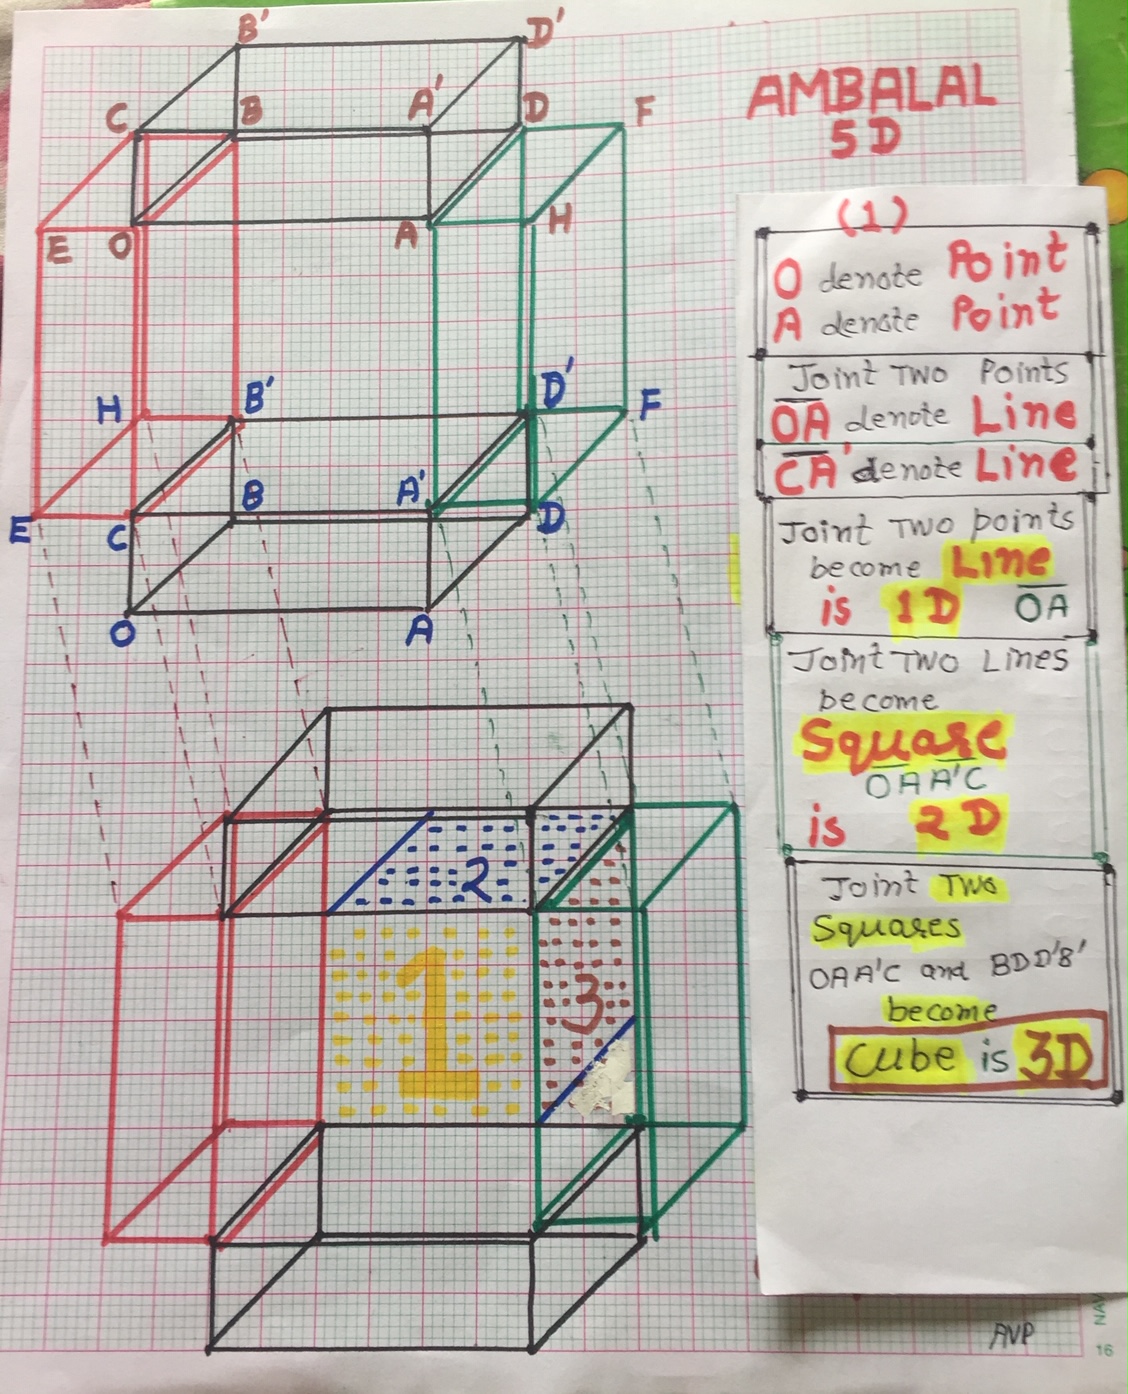 B' D'
C B A' D F
AMBALAL
5D
E O A H
H B' D' F
E C B A' D
O A
2
1
3
(1)
O denote Point
A denote Point
Joint TWO Points
O̅A̅ denote Line
C̅A̅' denote Line
Joint TWO points
become Line
is 1D O̅A̅
Joint TWO Lines
become
Square
O̅A̅A̅'C
is 2D
Joint TWO
Squares
OAA'C and BDD'B'
become
Cube is 3D
AVP
NAV
16